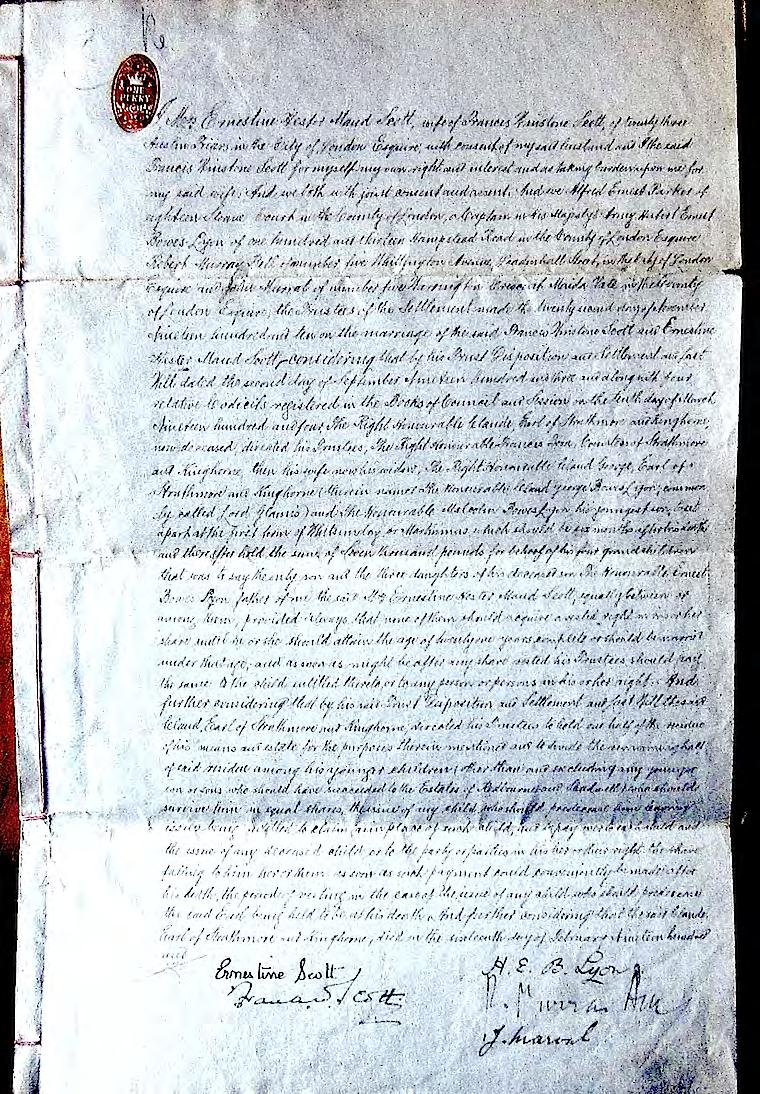 ONE
PENNY
I Mrs Ernestine Hester Maud Scott, wife of Francis Winstone Scott, of twenty three
Austin Friars, in the City of London Esquire, with consent of my said husband and I the said
Francis Winstone Scott for myself my own right and interest and as taking burden upon me for
my said wife, And we both with joint consent and assent; And we Alfred Ernest Parker of
eighteen Sloane Court in the County of London, a Captain in His Majesty's Army Hubert Ernest
Bowes Lyon of one hundred and thirteen Hampstead Road in the County of London Esquire
Robert Murray of number five Whittington Avenue, Leadenhall Street, in the City of London
Esquire and John of number five Crescent Maida Vale in the County
of London Esquire, the Trustees of the Settlement made the twenty second day of
Nineteen hundred and ten on the marriage of the said Francis Winstone Scott and Ernestine
Hester Maud Scott, considering that by his Trust Disposition and Settlement and last
Will dated the second day of September Nineteen hundred and three and along with four
relative Codicils registered in the Books of Council and Session on the tenth day of March
Nineteen hundred and four The Right Honourable Claude, Earl of Strathmore and Kinghorne,
now deceased, directed his Trustees, The Right Honourable Frances Dora, Countess of Strathmore
and Kinghorne, then his wife now his widow, The Right Honourable Claud George, Earl of
Strathmore and Kinghorne (therein named the Honourable Claud George Bowes Lyon, common-
ly called Lord Glamis) and The Honourable Malcolm Bowes Lyon his youngest son, to set
apart at the first term of Whitsunday or Martinmas which should be six months after his death
and thereafter hold the sum of Seven thousand pounds for behoof of his four grandchildren
that was to say the only son and the three daughters of his deceased son The Honourable Ernest
Bowes Lyon father of me the said Mrs Ernestine Hester Maud Scott, equally between or
among them, provided always that none of them should acquire a vested right in his or her
share until he or she should attain the age of twenty one years complete or should be married
under that age; and as soon as might be after any share vested his Trustees should pay
the same to the child entitled thereto or to any person or persons in his or her right: And
further considering that by his said Trust Disposition and Settlement and last Will the said
Claud, Earl of Strathmore and Kinghorne, directed his Trustees to hold one half of the residue
of his means and estate for the purposes therein mentioned and to divide the remaining half
of said residue among his younger children (other than and excluding any younger
son or sons who should have succeeded to the Estates of and) who should
survive him in equal shares, the issue of any child who should predecease him leaving
issue being entitled to claim in place of such child, and to pay over to each child and
the issue of any deceased child or to the party or parties in his her or their right the share
falling to him her or them as soon as such payment could conveniently be made after
his death, the period of vesting in the case of the issue of any child who should predecease
the said Earl being held to be at his death; And further considering that the said Claude,
Earl of Strathmore and Kinghorne, died on the sixteenth day of February Nineteen hundred
and
Ernestine Scott
Francis W Scott
H. E. B. Lyon
R. Murray
J.